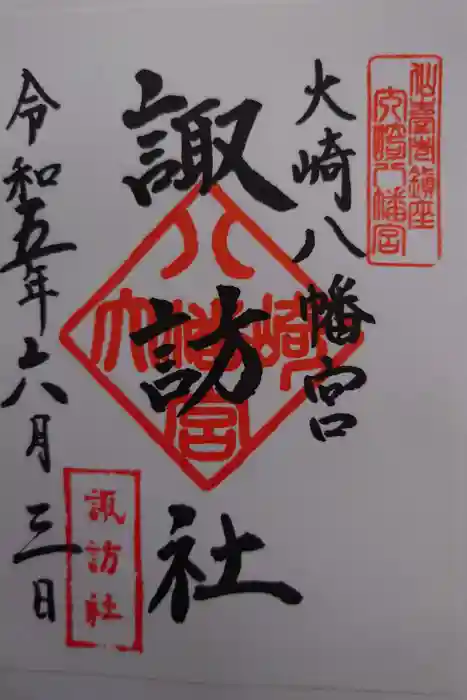 仙臺巷鎮座
大崎八幡宮
大崎八幡宮
諏訪社
八幡宮
大崎
令和五年六月三日
諏訪社